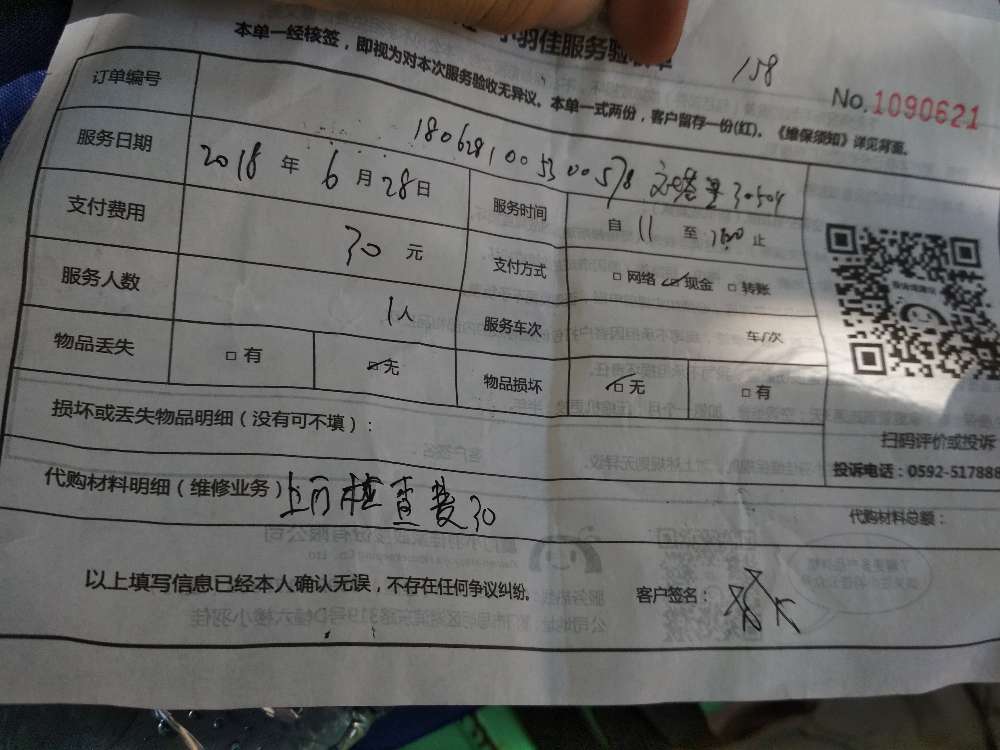 小羽佳服务验收单
158
本单一经核签，即视为对本次服务验收无异议。本单一式两份，客户留存一份(红)。《维保须知》详见背面。
No.1090621
订单编号
1806281005300578
30504
服务日期 2018 年 6 月 28 日 服务时间 自 11 至 止
支付费用 30 元 支付方式 □ 网络 ☑ 现金 □ 转账
服务人数 1人 服务车次 车/次
物品丢失 □ 有 ☑ 无 物品损坏 ☑ 无 □ 有
损坏或丢失物品明细（没有可不填）：
扫码评价或投诉
投诉电话：0592-517888
代购材料明细（维修业务） 上门检查费30
代购材料总额：
以上填写信息已经本人确认无误，不存在任何争议纠纷。 客户签名：